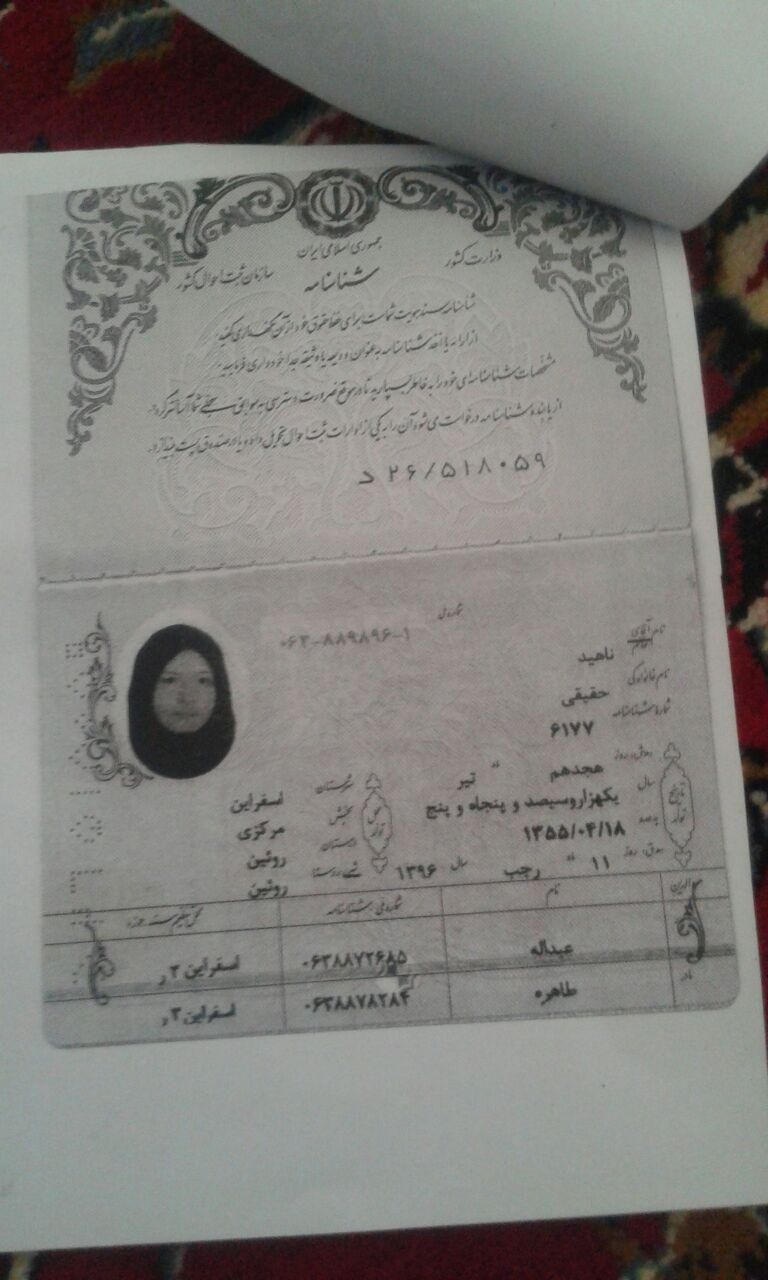 جمهوری اسلامی ایران
وزارت کشور
سازمان ثبت احوال کشور
شناسنامه
شناسنامه سند هویت شماست برای حفظ حقوق خود از آن نگهداری کنید.
از ارائه یا اخذ شناسنامه به عنوان ودیعه یا وثیقه جداً خودداری فرمایید.
مشخصات شناسنامه‌ای خود را به خاطر بسپارید تا در موقع ضرورت دسترسی به سوابق سجلی شما آسانتر گردد.
از یابنده شناسنامه درخواست می‌شود آن را به یکی از ادارات ثبت احوال تحویل داده و یا در صندوق پست بیندازد.
۲۶/۵۱۸۰۵۹ د
شماره ملی
۰۶۳-۸۸۹۸۹۶-۱
نام آقای
خانم
ناهید
نام خانوادگی
حقیقی
شماره شناسنامه
۶۱۷۷
روز
هجدهم
تیر
سال
یکهزاروسیصد و پنجاه و پنج
۱۳۵۵/۰۴/۱۸
روز
۱۱
رجب
سال
۱۳۹۶
تاریخ تولد
محل تولد
شهرستان
اسفراین
بخش
مرکزی
دهستان
روئین
روئین
نام
شماره ملی / شناسنامه
والدین
عبداله
۰۶۳۸۸۷۲۶۸۵
اسفراین ۲ ر
مادر
طاهره
۰۶۳۸۸۷۸۲۸۴
اسفراین ۲ ر